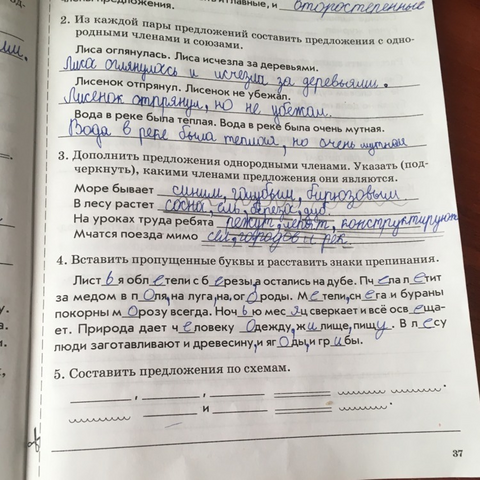 члены предложения.
и главные, и второстепенные
2. Из каждой пары предложений составить предложения с одно-
родными членами и союзами.
Лиса оглянулась. Лиса исчезла за деревьями.
Лиса оглянулась и исчезла за деревьями.
Лисенок отпрянул. Лисенок не убежал.
Лисенок отпрянул, но не убежал.
Вода в реке была теплая. Вода в реке была очень мутная.
Вода в реке была теплая, но очень мутная
3. Дополнить предложения однородными членами. Указать (под-
черкнуть), какими членами предложения они являются.
Море бывает синим, голубым, бирюзовым.
В лесу растет сосна, ель, береза, дуб.
На уроках труда ребята режут, лепят, конструктируют
Мчатся поезда мимо сёл, городов и рек.
4. Вставить пропущенные буквы и расставить знаки препинания.
Листья облетели с березы, а остались на дубе. Пчела летит
за медом в поля, на луга, на, огороды. Метели, снега и бураны
покорны морозу всегда. Ночью месяц сверкает и всё освеща-
ет. Природа дает человеку одежду, жилище, пищу. В лесу
люди заготавливают и древесину, и ягоды, и грибы.
5. Составить предложения по схемам.
и
37